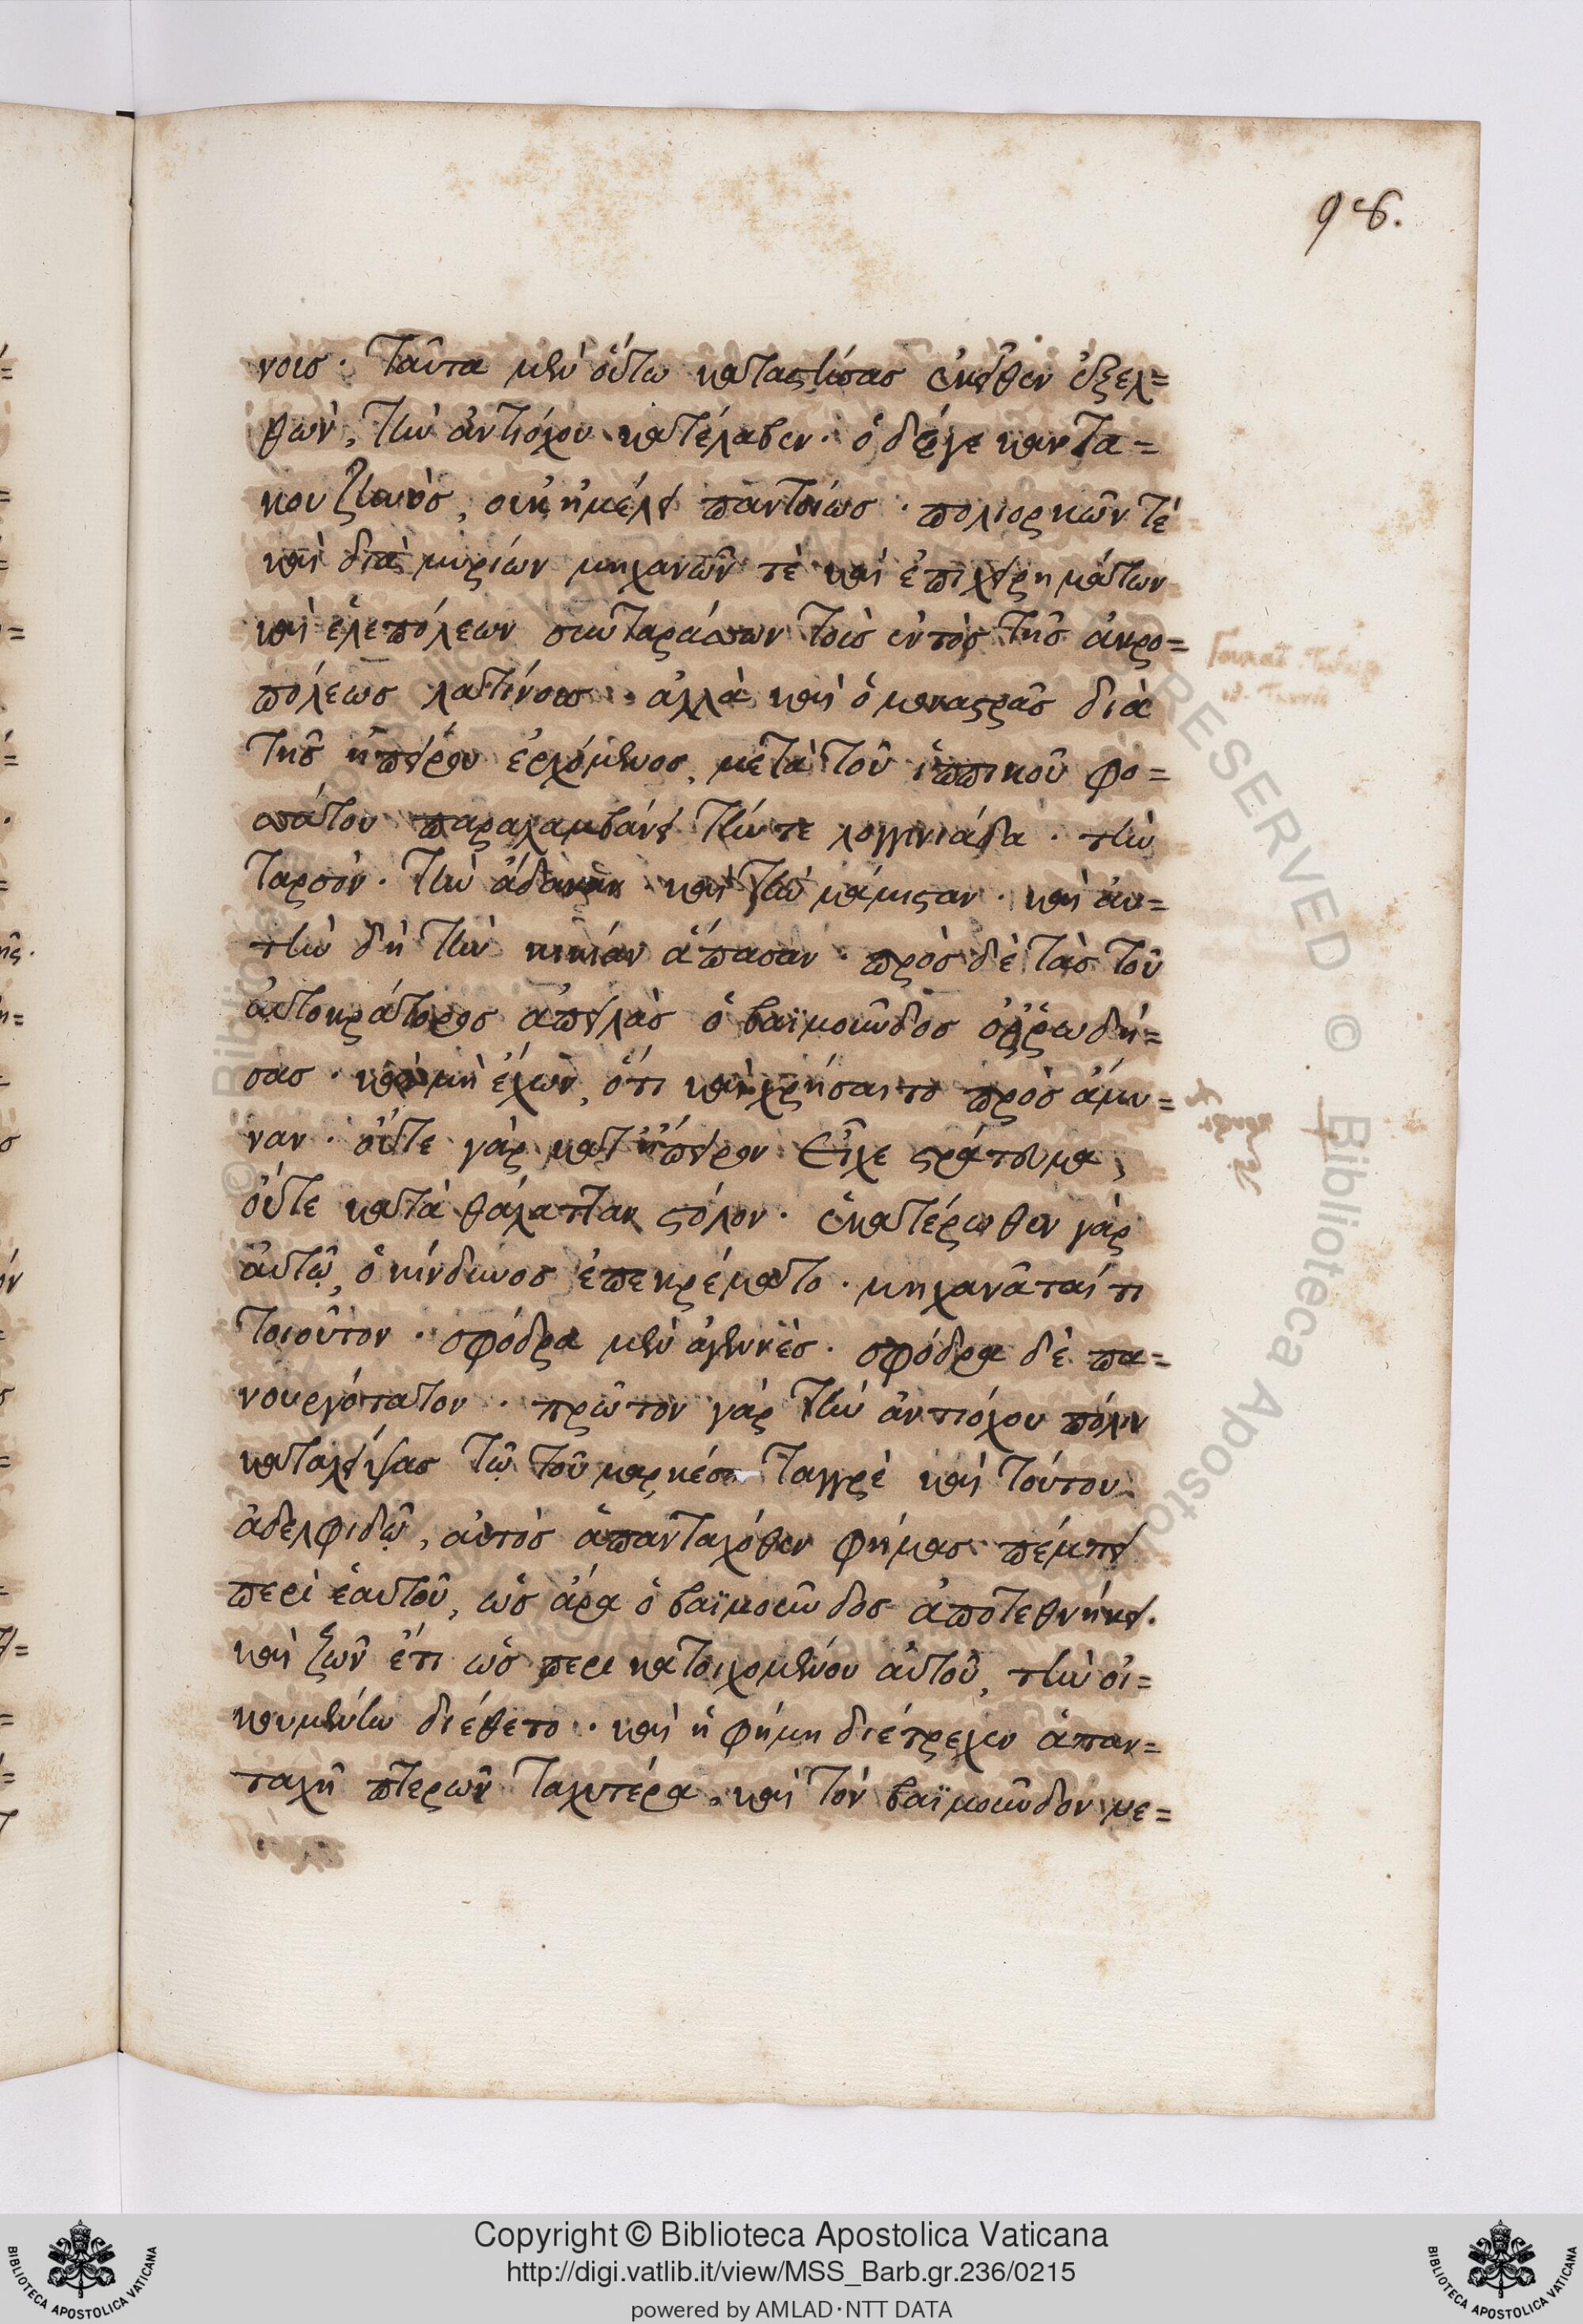 98.
νοις· Ταῦτα μὲν οὕτω καταστήσας ἐκεῖθεν ἐξελ=
θὼν, τὴν ἀντιόχου κατέλαβεν· ὁ δέ γε καντα=
κουζηνὸς, οὐκ ἠμέλει παντοίως· πολιορκῶν τὲ
καὶ διὰ μυρίων μηχανῶν τὲ καὶ ἐπιχειρημάτων
καὶ ἑλεπόλεων συνταράσσων τοῖς ἐντὸς τῆς ἀκρο=
πόλεως λατίνοις· ἀλλὰ καὶ ὁ μοναστρᾶς διὰ
τῆς ἠπείρου ἐρχόμενος, μετὰ τοῦ ἱππικοῦ φο=
σσάτου παραλαμβάνει τήν τε λογγινιάδα· τὴν
Ταρσὸν· τὴν ἄδαναν· καὶ τὴν μάμισταν· καὶ αὐ=
τὴν δὴ τὴν κικίαν ἅπασαν· πρὸς δὲ τὰς τοῦ
αὐτοκράτορος ἀπειλὰς ὁ βαϊμοῦνδος ὀῤῥωδή=
σας· καὶ μὴ ἔχων, ὅτι καὶ χρήσαιτο πρὸς ἄμυ=
ναν· οὔτε γὰρ κατ' ἤπειρον εἶχε στράτευμα,
οὔτε κατὰ θάλατταν στόλον· ἑκατέρωθεν γὰρ
αὐτῷ, ὁ κίνδυνος ἐπεκρέματο· μηχανᾶταί τι
τοιοῦτον· σφόδρα μὲν ἀγενὲς· σφόδρα δὲ πα=
νουργότατον· πρῶτον γὰρ τὴν ἀντιόχου πόλιν
καταλείψας τῷ τοῦ μαρκέση Ταγγρὲ καὶ τούτου
ἀδελφιδῷ, αὐτὸς ἁπανταχόθεν φήμας πέμπει
περὶ ἑαυτοῦ, ὡς ἄρα ὁ βαϊμοῦνδος ἀποτεθνήκει·
καὶ ζῶν ἔτι ὡς περι κατοιχομένου αὐτοῦ, τὴν οἰ=
κουμένην διέθετο· καὶ ἡ φήμη διέτρεχεν ἁπαν=
ταχῆ πτερῶν ταχυτέρα, καὶ τὸν βαϊμοῦνδον με=
Copyright © Biblioteca Apostolica Vaticana
http://digi.vatlib.it/view/MSS_Barb.gr.236/0215
powered by AMLAD·NTT DATA